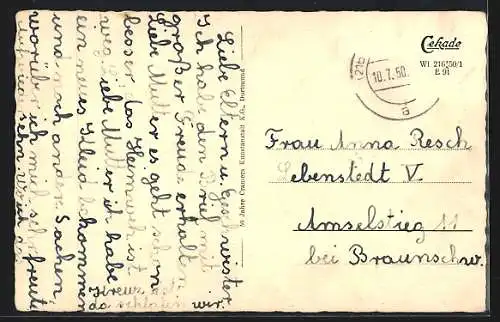 Liebe Eltern u. Geschwister
Ich habe den Brief mit
großer Freude erhalten
Liebe Mutter es geht schon
besser das Heimweh ist
weg. Liebe Mutter ich habe
ein neues Kleid bekommen
und noch andere Sachen,
worüber ich mich sehr freute
Kreuz
da schlafen wir.
50 Jahre Cramers Kunstanstalt K.G., Dortmund
Cekade
WI 216/50/1
E 91
(21b)
10.7.50.
Frau Anna Resch
Lebenstedt V.
Amselstieg 11
bei Braunschw.